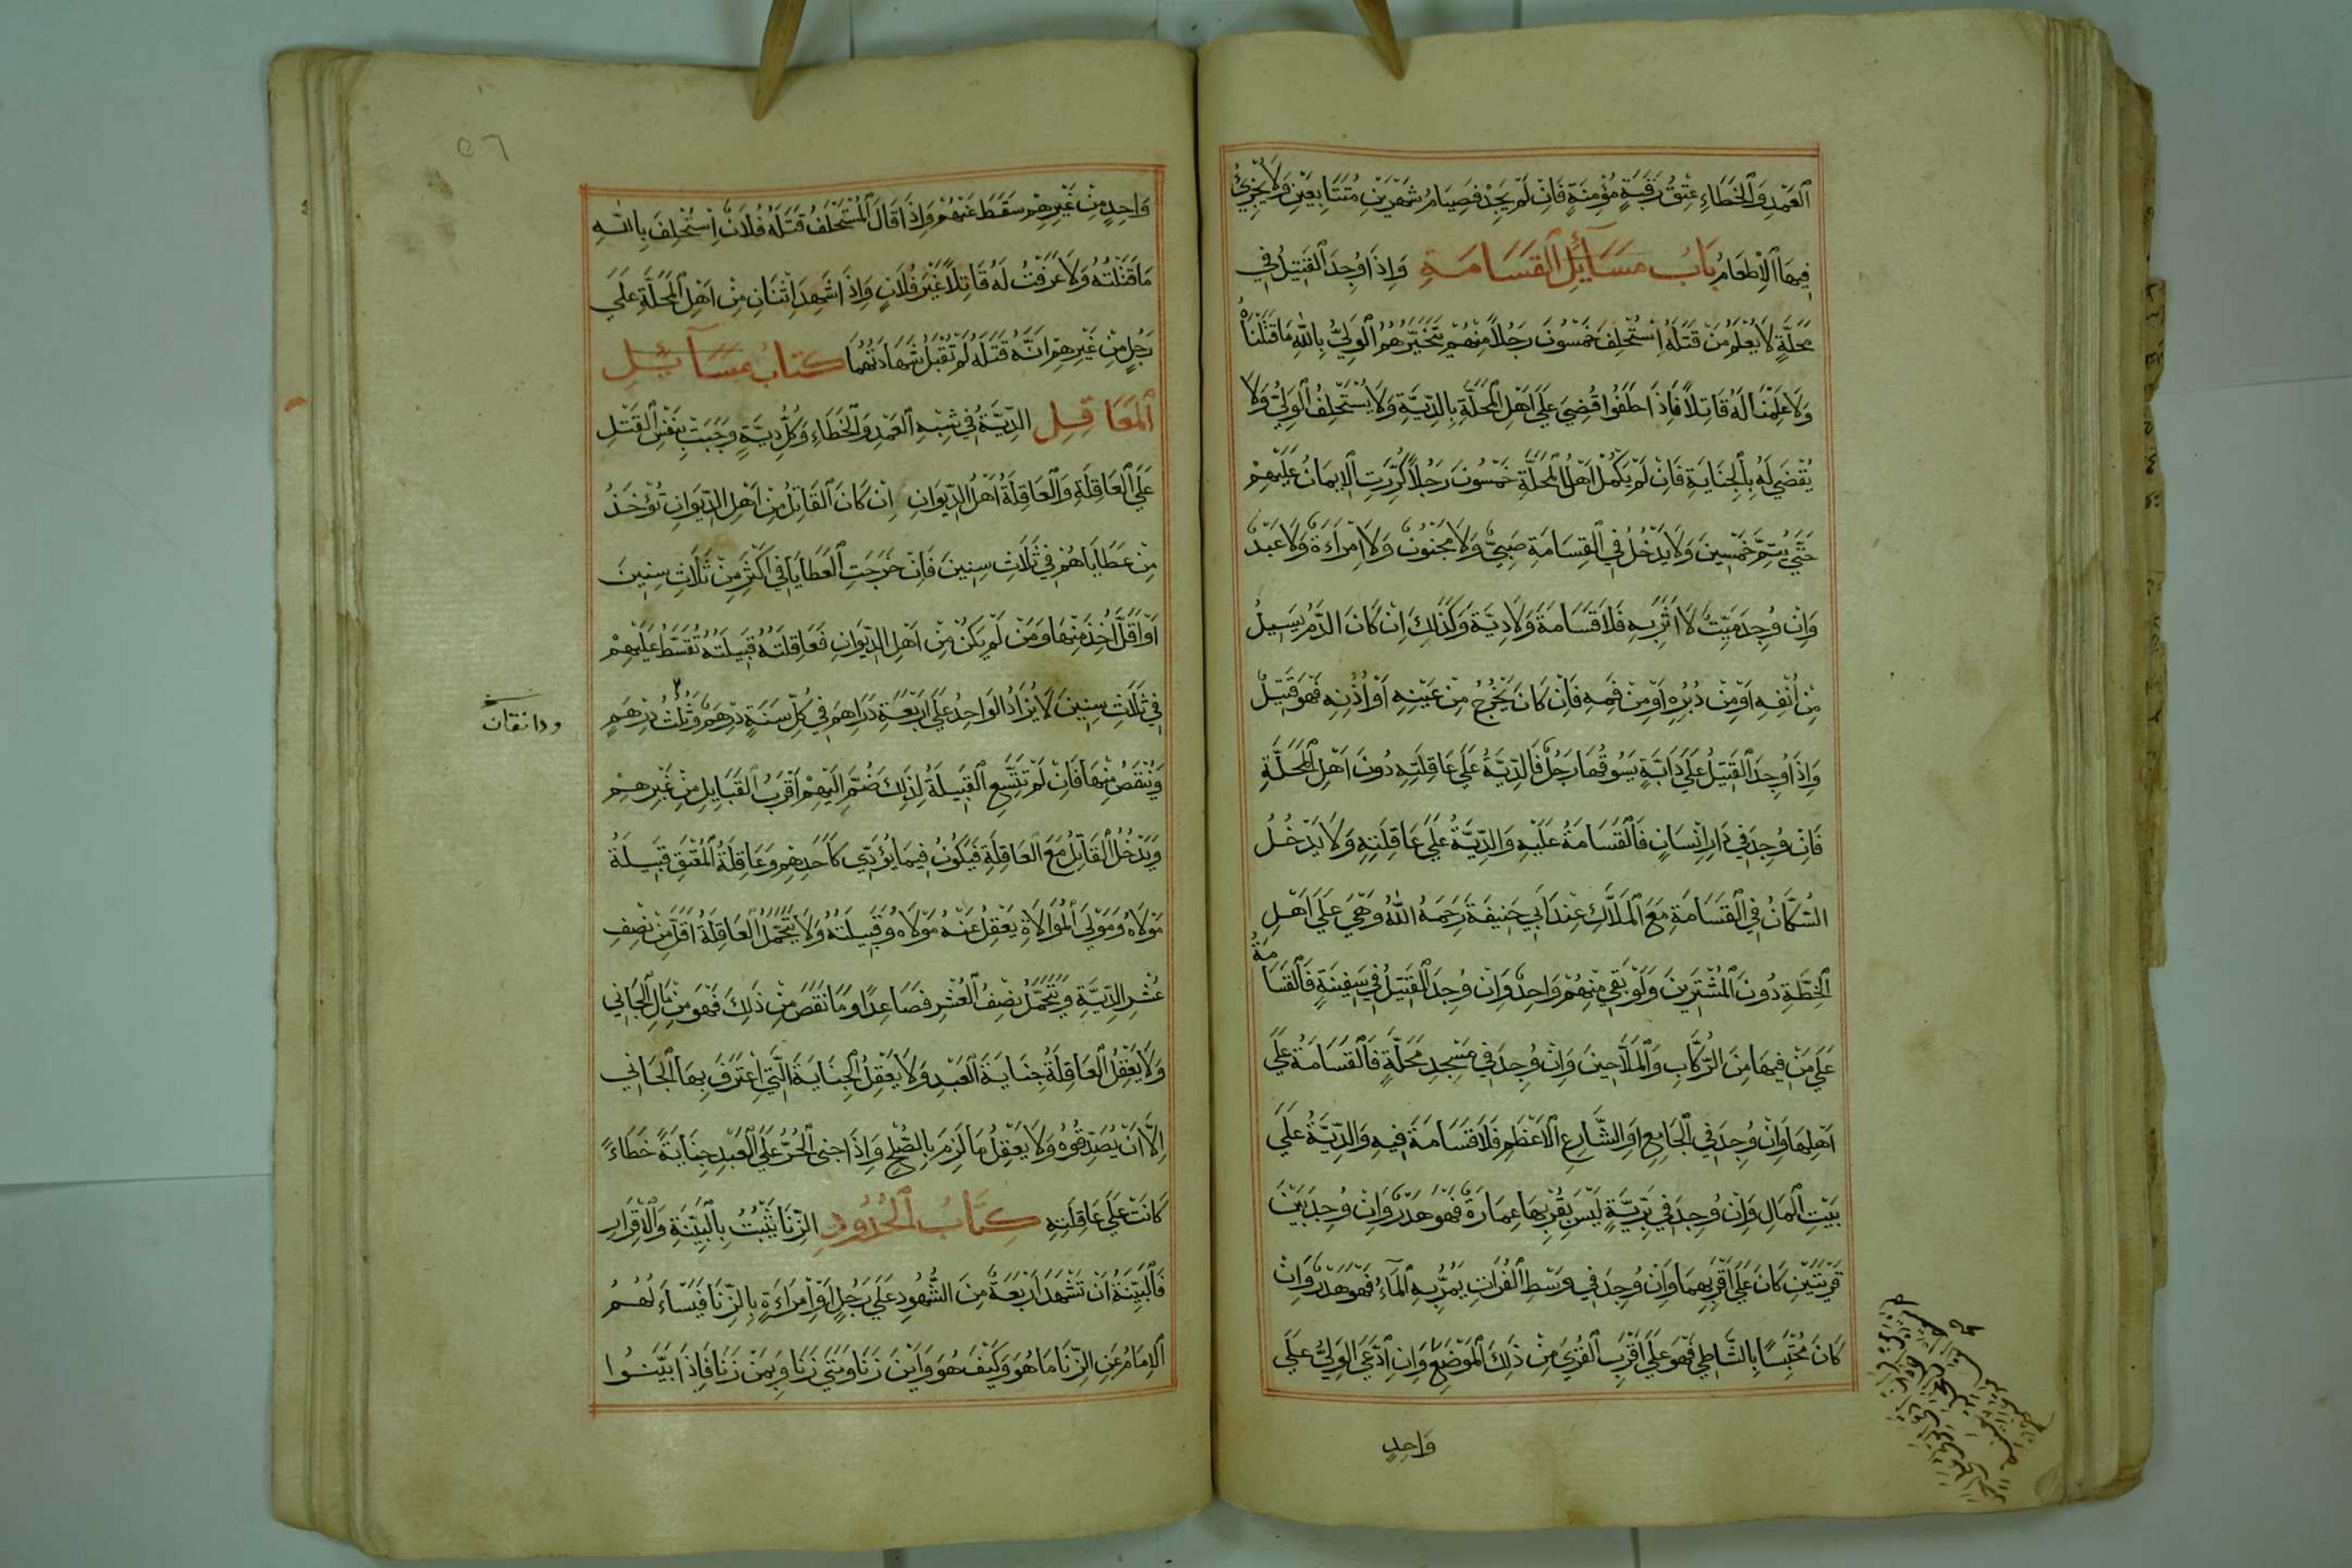 العَمْدِ وَالْخَطَاءِ عِتْقُ رَقَبَةٍ مُؤْمِنَةٍ فَاِنْ لَمْ يَجِدْ فَصِيَامُ شَهْرَيْنِ مُتَتَابِعَيْنِ وَلَا يُجْزِئُ
فِيهَا الْاِطْعَامُ بَابُ مَسَآئِلِ القَسَامَةِ وَاِذَا وُجِدَ القَتِيلُ فِي
مَحَلَّةٍ لَا يُعْلَمُ مَنْ قَتَلَهُ اِسْتُحْلِفَ خَمْسُونَ رَجُلًا مِنْهُمْ يَتَخَيَّرُهُمُ الْوَلِيُّ بِاللّٰهِ مَا قَتَلْنَاهُ
وَلَا عَلِمْنَا لَهُ قَاتِلًا فَاِذَا حَلَفُوا قُضِيَ عَلَى اَهْلِ المَحَلَّةِ بِالدِّيَةِ وَلَا يُسْتَحْلَفُ الْوَلِيُّ وَلَا
يُقْضَى لَهُ بِالْجِنَايَةِ فَاِنْ لَمْ يَكْمُلْ اَهْلُ المَحَلَّةِ خَمْسُونَ رَجُلًا كُرِّرَتِ الْاِيمَانُ عَلَيْهِمْ
حَتَّى يُتِمَّ خَمْسِينَ وَلَا يَدْخُلُ فِي القَسَامَةِ صَبِيٌّ وَلَا مَجْنُونٌ وَلَا امْرَاَةٌ وَلَا عَبْدٌ
وَاِنْ وُجِدَ مَيِّتٌ لَا اَثَرَ بِهِ فَلَا قَسَامَةَ وَلَا دِيَةَ وَكَذَلِكَ اِنْ كَانَ الدَّمُ يَسِيلُ
مِنْ اَنْفِهِ اَوْ مِنْ دُبُرِهِ اَوْ مِنْ فَمِهِ فَاِنْ كَانَ يَخْرُجُ مِنْ عَيْنِهِ اَوْ اُذُنِهِ فَهُوَ قَتِيلٌ
وَاِذَا وُجِدَ القَتِيلُ عَلَى دَابَّةٍ يَسُوقُهَا رَجُلٌ فَالدِّيَةُ عَلَى عَاقِلَتِهِ دُونَ اَهْلِ المَحَلَّةِ
فَاِنْ وُجِدَ فِي دَارِ اِنْسَانٍ فَالْقَسَامَةُ عَلَيْهِ وَالدِّيَةُ عَلَى عَاقِلَتِهِ وَلَا يَدْخُلُ
السُّكَّانُ فِي القَسَامَةِ مَعَ المَلَّاكِ عِنْدَ اَبِي حَنِيفَةَ رَحِمَهُ اللّٰهُ وَهِيَ عَلَى اَهْلِ
الْخِطَّةِ دُونَ المُشْتَرِينَ وَلَوْ بَقِيَ مِنْهُمْ وَاحِدٌ وَاِنْ وُجِدَ القَتِيلُ فِي سَفِينَةٍ فَالْقَسَامَةُ
عَلَى مَنْ فِيهَا مِنَ الرُّكَّابِ وَالْمَلَّاحِينَ وَاِنْ وُجِدَ فِي مَسْجِدِ مَحَلَّةٍ فَالْقَسَامَةُ عَلَى
اَهْلِهَا وَاِنْ وُجِدَ فِي الْجَامِعِ اَوِ الشَّارِعِ الْاَعْظَمِ فَلَا قَسَامَةَ فِيهِ وَالدِّيَةُ عَلَى
بَيْتِ الْمَالِ وَاِنْ وُجِدَ فِي بَرِّيَّةٍ لَيْسَ بِقُرْبِهَا عِمَارَةٌ فَهُوَ هَدَرٌ وَاِنْ وُجِدَ بَيْنَ
قَرْيَتَيْنِ كَانَ عَلَى اَقْرَبِهِمَا وَاِنْ وُجِدَ فِي وَسَطِ الْفُرَاتِ يَمُرُّ بِهِ الْمَآءُ فَهُوَ هَدَرٌ وَاِنْ
كَانَ مُحْتَبِسًا بِالشَّاطِي فَهُوَ عَلَى اَقْرَبِ القُرَى مِنْ ذَلِكَ الْمَوْضِعِ وَاِنِ ادَّعَى الوَلِيُّ عَلَى
وَاحِدٍ
٥٦
وَاحِدٍ مِنْ غَيْرِهِمْ سَقَطَ عَنْهُمْ وَاِذَا قَالَ الْمُسْتَحْلَفُ قَتَلَهُ فُلَانٌ اِسْتُحْلِفَ بِاللّٰهِ
مَا قَتَلْتُهُ وَلَا عَرَفْتُ لَهُ قَاتِلًا غَيْرَ فُلَانٍ وَاِذَا شَهِدَ اِثْنَانِ مِنْ اَهْلِ المَحَلَّةِ عَلَى
رَجُلٍ مِنْ غَيْرِهِمْ اَنَّهُ قَتَلَهُ لَمْ تُقْبَلْ شَهَادَتُهُمَا كِتَابُ مَسَآئِلِ
الْمَعَاقِلِ الدِّيَةُ فِي شِبْهِ الْعَمْدِ وَالْخَطَاءِ وَكُلُّ دِيَةٍ وَجَبَتْ بِنَفْسِ القَتْلِ
عَلَى الْعَاقِلَةِ وَالْعَاقِلَةُ اَهْلُ الدِّيوَانِ اِنْ كَانَ الْقَاتِلُ مِنْ اَهْلِ الدِّيوَانِ تُؤْخَذُ
مِنْ عَطَايَاهُمْ فِي ثَلَاثِ سِنِينَ فَاِنْ خَرَجَتِ الْعَطَايَا فِي اَكْثَرِ مِنْ ثَلَاثِ سِنِينَ
اَوْ اَقَلَّ اُخِذَ مِنْهَا وَمَنْ لَمْ يَكُنْ مِنْ اَهْلِ الدِّيوَانِ فَعَاقِلَتُهُ قَبِيلَتُهُ تُقَسَّطُ عَلَيْهِمْ
فِي ثَلَاثِ سِنِينَ لَا يُزَادُ الوَاحِدُ عَلَى اَرْبَعَةِ دَرَاهِمَ فِي كُلِّ سَنَةٍ دِرْهَمٌ وَثُلُثُ دِرْهَمٍ
ودانقان
وَيُنْقَصُ مِنْهَا فَاِنْ لَمْ تَتَّسِعِ القَبِيلَةُ لِذَلِكَ ضُمَّ اِلَيْهِمْ اَقْرَبُ القَبَايِلِ مِنْ غَيْرِهِمْ
وَيَدْخُلُ القَاتِلُ مَعَ العَاقِلَةِ فَيَكُونُ فِيمَا يُؤَدِّي كَاَحَدِهِمْ وَعَاقِلَةُ المُعْتَقِ قَبِيلَةُ
مَوْلَاهُ وَمَوْلَى المُوَالَاةِ يَعْقِلُ عَنْهُ مَوْلَاهُ وَقَبِيلَتُهُ وَلَا يَتَحَمَّلُ العَاقِلَةُ اَقَلَّ مِنْ نِصْفِ
عُشْرِ الدِّيَةِ وَيَتَحَمَّلُ نِصْفَ الْعُشْرِ فَصَاعِدًا وَمَا نَقَصَ مِنْ ذَلِكَ فَهُوَ مِنْ مَالِ الْجَانِي
وَلَا يَعْقِلُ العَاقِلَةُ جِنَايَةَ العَبْدِ وَلَا يَعْقِلُ الْجِنَايَةَ الَّتِي اعْتَرَفَ بِهَا الْجَانِي
اِلَّا اَنْ يُصَدِّقُوهُ وَلَا يَعْقِلُ مَا لَزِمَ بِالصُّلْحِ وَاِذَا جنى الحُرُّ عَلَى العَبْدِ جِنَايَةً خَطَاءً
كَانَتْ عَلَى عَاقِلَتِهِ كِتَابُ الْحُدُودِ الزِّنَا يَثْبُتُ بِالْبَيِّنَةِ وَالْاِقْرَارِ
فَالْبَيِّنَةُ اَنْ تَشْهَدَ اَرْبَعَةٌ مِنَ الشُّهُودِ عَلَى رَجُلٍ اَوْ اِمْرَاَةٍ بِالزِّنَا فَيَسْاَلُهُمُ
الْاِمَامُ عَنِ الزِّنَا مَا هُوَ وَكَيْفَ هُوَ وَاَيْنَ زَنَا وَمَتَى زَنَا وَبِمَنْ زَنَا فَاِذَا بَيَّنُوا